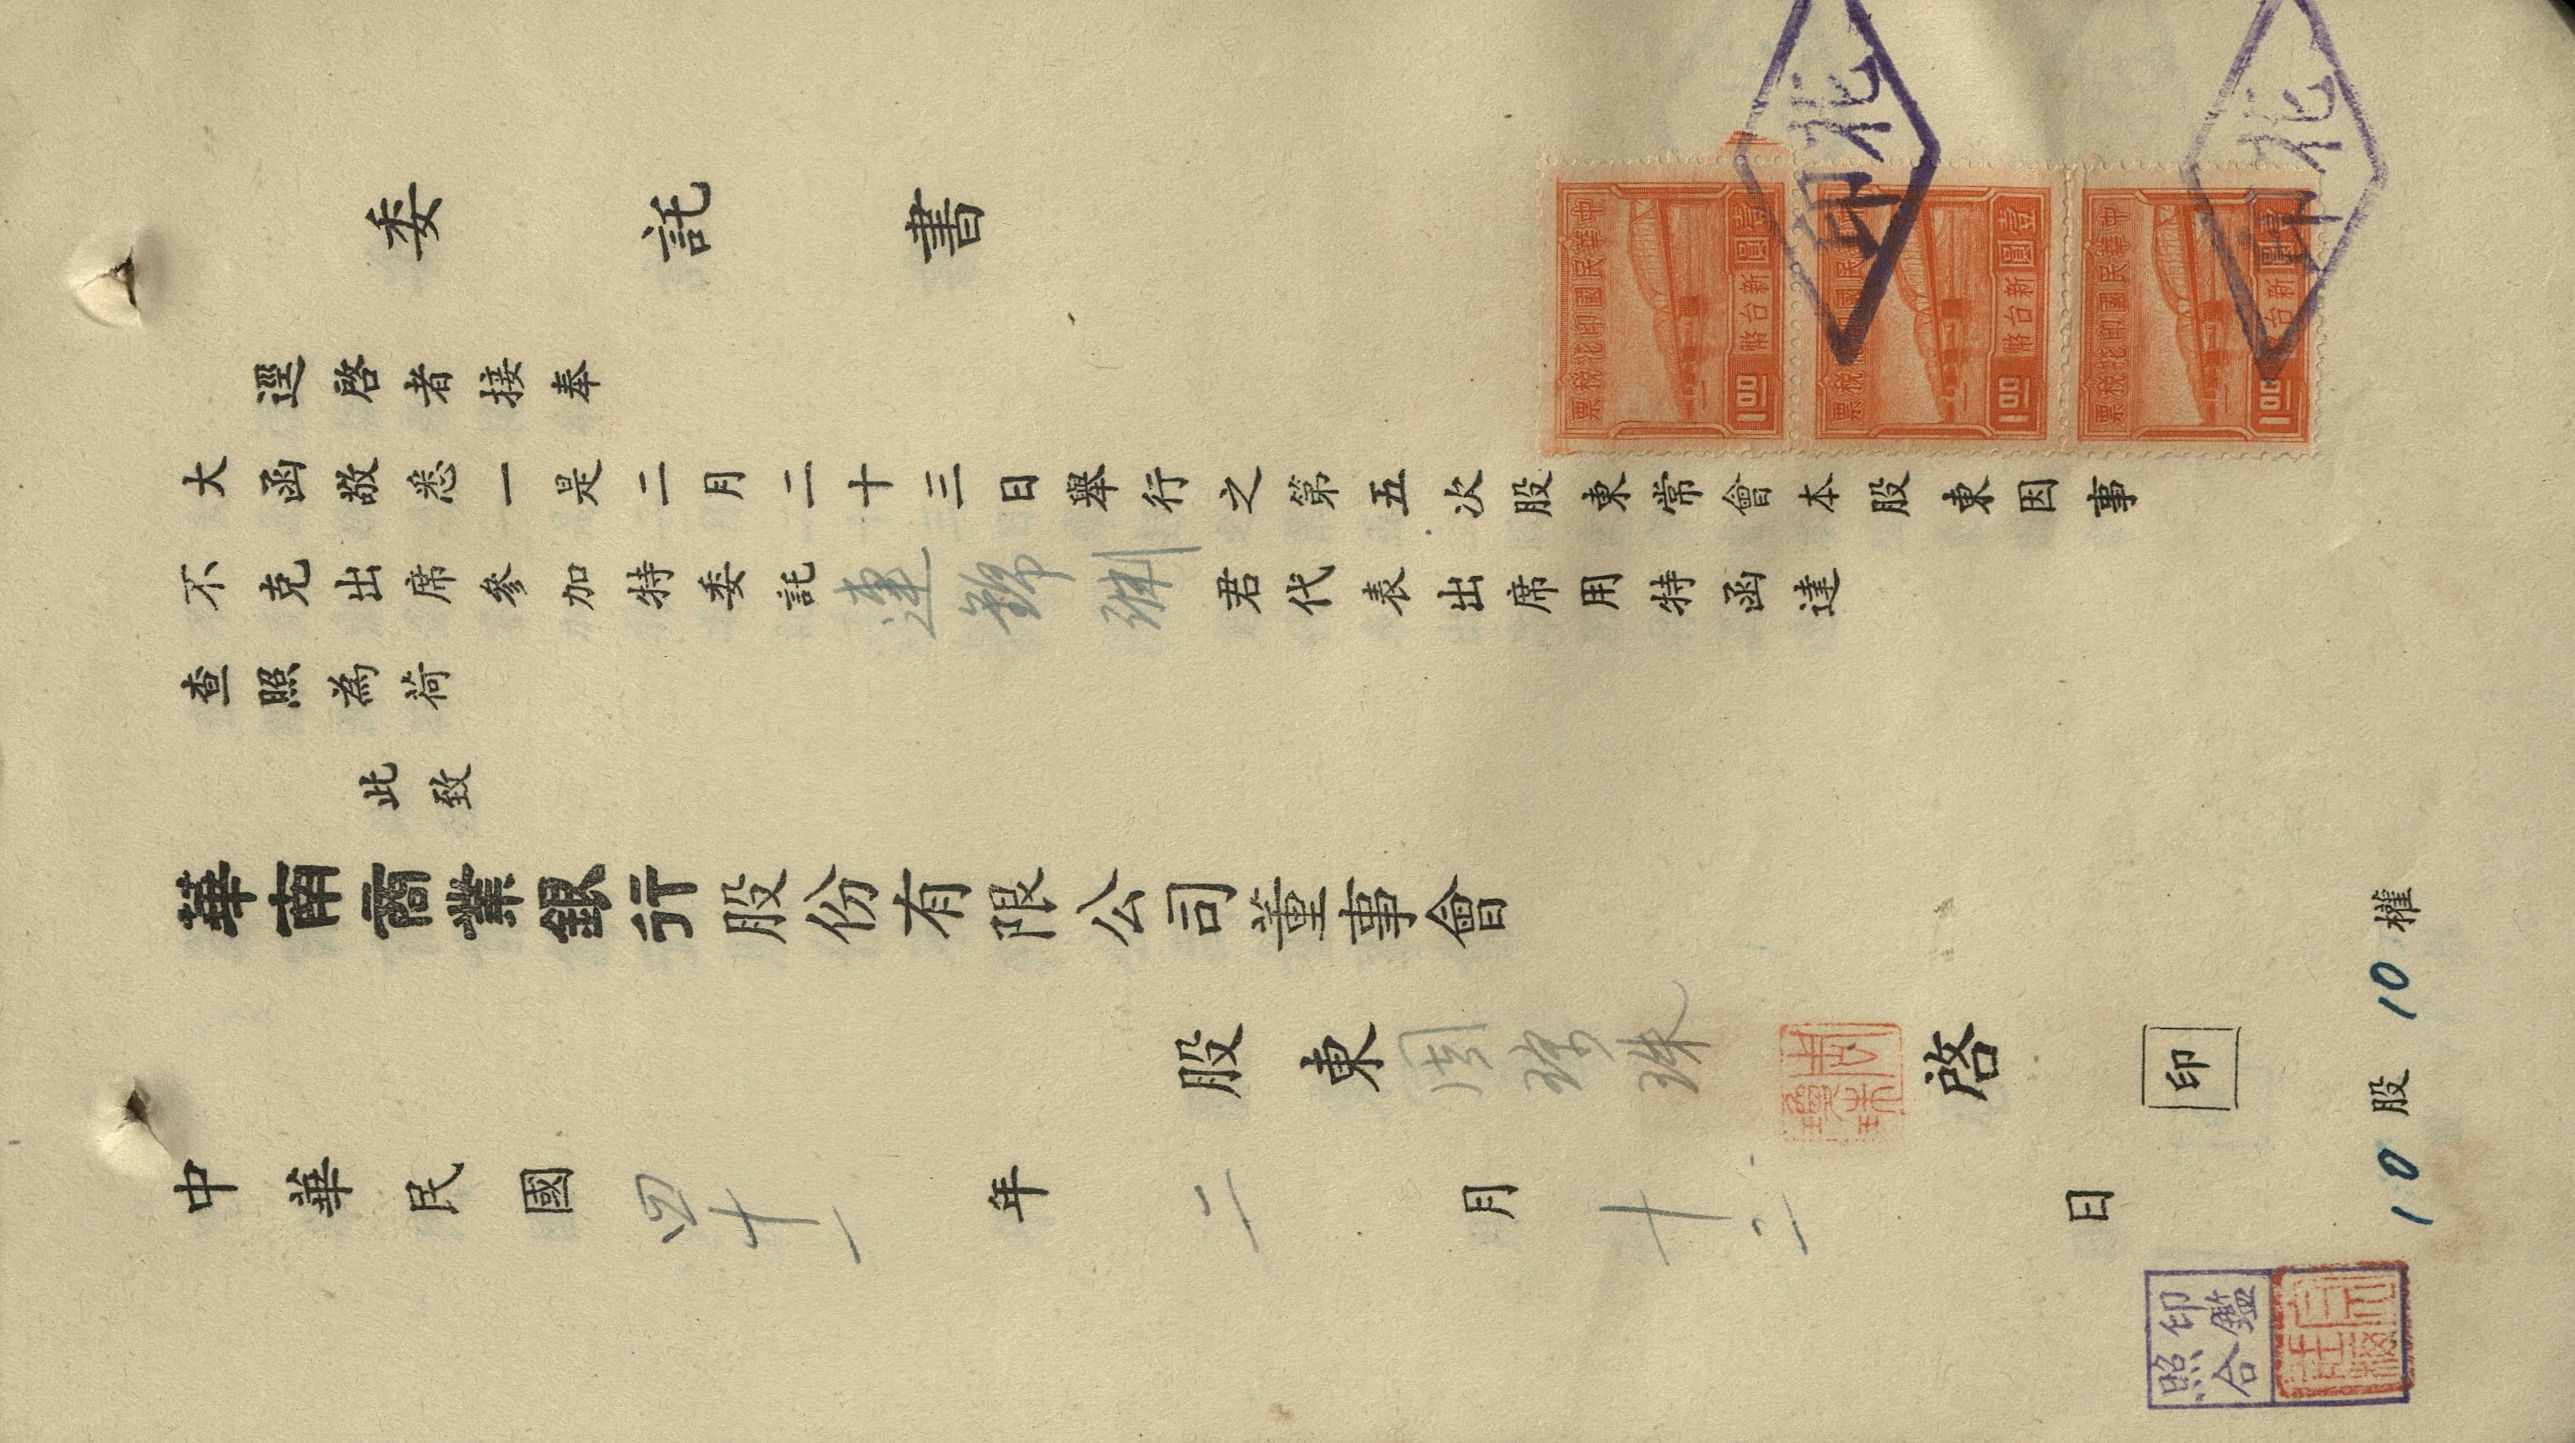 委託書
逕啓者接奉
大函敬悉一是二月二十三日舉行之第五次股東常會本股東因事
不克出席參加特委託連錦琳君代表出席用特函達
查照為荷
此致
華南商業銀行股份有限公司董事會
股東周 珠啓
印
中華民國四十一年二月十二日
10股10權
印鑑
照合
中華民國印花稅票
壹圓新台幣
1.00
壹圓新台幣
1.00
中華民國印花稅票
新台
1.00